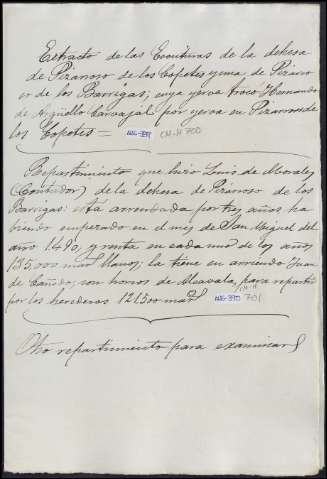 Extracto de las Escrituras de la dehesa
de Pizarroso de los Copetes y una de Pizarro
so de los Barrigas; cuya yerva trocó Hernando
de Argüello Carvajál por yerva en Pizarroso de
los Copetes = CM-H 700
Repartimiento que hizo Luis de Morales
(Contador) de la dehesa de Pizarroso de los
Barrigas: está arrendada por tres años, ha
biendo empezado en el mes de San Miguel del
año 1490, y renta en cada uno de los años
135,000 mars llanos; la tiene en arriendo Juan
de; con horros de Alcavala, para repartir
por los herederos 121500 mars CM-H 701
Otro repartimiento para examinar